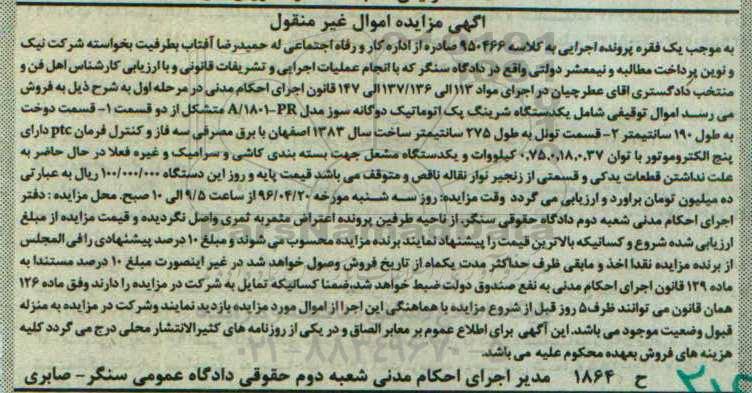 آگهی مزایده اموال غیر منقول
به موجب یک فقره پرونده اجرایی به کلاسه ۹۵۰۴۶۶ صادره از اداره کار و رفاه اجتماعی له حمیدرضا آفتاب بطرفیت بخواسته شرکت نیک
و نوین پرداخت مطالبه و نیمعشر دولتی واقع در دادگاه سنگر که با انجام عملیات اجرایی و تشریفات قانونی و با ارزیابی کارشناس اهل فن و
منتخب دادگستری اقای عطرچیان در اجرای مواد ۱۱۳ الی ۱۳۷/۱۳۶ الی ۱۴۷ قانون اجرای احکام مدنی در مرحله اول به شرح ذیل به فروش
می رسد اموال توقیفی شامل یکدستگاه شرینگ پک اتوماتیک دوگانه سوز مدل A/۱۸۰۱-PR متشکل از دو قسمت ۱- قسمت دوخت
به طول ۱۹۰ سانتیمتر ۲- قسمت تونل به طول ۲۷۵ سانتیمتر ساخت سال ۱۳۸۳ اصفهان با برق مصرفی سه فاز و کنترل فرمان ptc دارای
پنج الکتروموتور با توان ۰.۷۵،۰.۱۸،۰.۳۷ کیلووات و یکدستگاه مشعل جهت بسته بندی کاشی و سرامیک و غیره فعلا در حال حاضر به
علت نداشتن قطعات یدکی و قسمتی از زنجیر نوار نقاله ناقص و متوقف می باشد قیمت پایه و روز این دستگاه ۱۰۰/۰۰۰/۰۰۰ ریال به عبارتی
ده میلیون تومان براورد و ارزیابی می گردد وقت مزایده: روز سه شنبه مورخه ۹۶/۰۴/۲۰ از ساعت ۹/۵ الی ۱۰ صبح. محل مزایده : دفتر
اجرای احکام مدنی شعبه دوم دادگاه حقوقی سنگر. از ناحیه طرفین پرونده اعتراض مثمربه ثمری واصل نگردیده و قیمت مزایده از مبلغ
ارزیابی شده شروع و کسانیکه بالاترین قیمت را پیشنهاد نمایند برنده مزایده محسوب می شوند و مبلغ ۱۰ درصد پیشنهادی را فی المجلس
از برنده مزایده نقدا اخذ و مابقی ظرف حداکثر مدت یکماه از تاریخ فروش وصول خواهد شد در غیر اینصورت مبلغ ۱۰ درصد مستندا به
ماده ۱۲۹ قانون اجرای احکام مدنی به نفع صندوق دولت ضبط خواهد شد،ضمنا کسانیکه تمایل به شرکت در مزایده را دارند وفق ماده ۱۲۶
همان قانون می توانند ظرف ۵ روز قبل از شروع مزایده با هماهنگی این اجرا از اموال مورد مزایده بازدید نمایند وشرکت در مزایده به منزله
قبول وضعیت موجود می باشد. این آگهی برای اطلاع عموم بر معابر الصاق و در یکی از روزنامه های کثیرالانتشار محلی درج می گردد کلیه
هزینه های فروش بعهده محکوم علیه می باشد.
ح ۱۸۶۴ مدیر اجرای احکام مدنی شعبه دوم حقوقی دادگاه عمومی سنگر- صابری